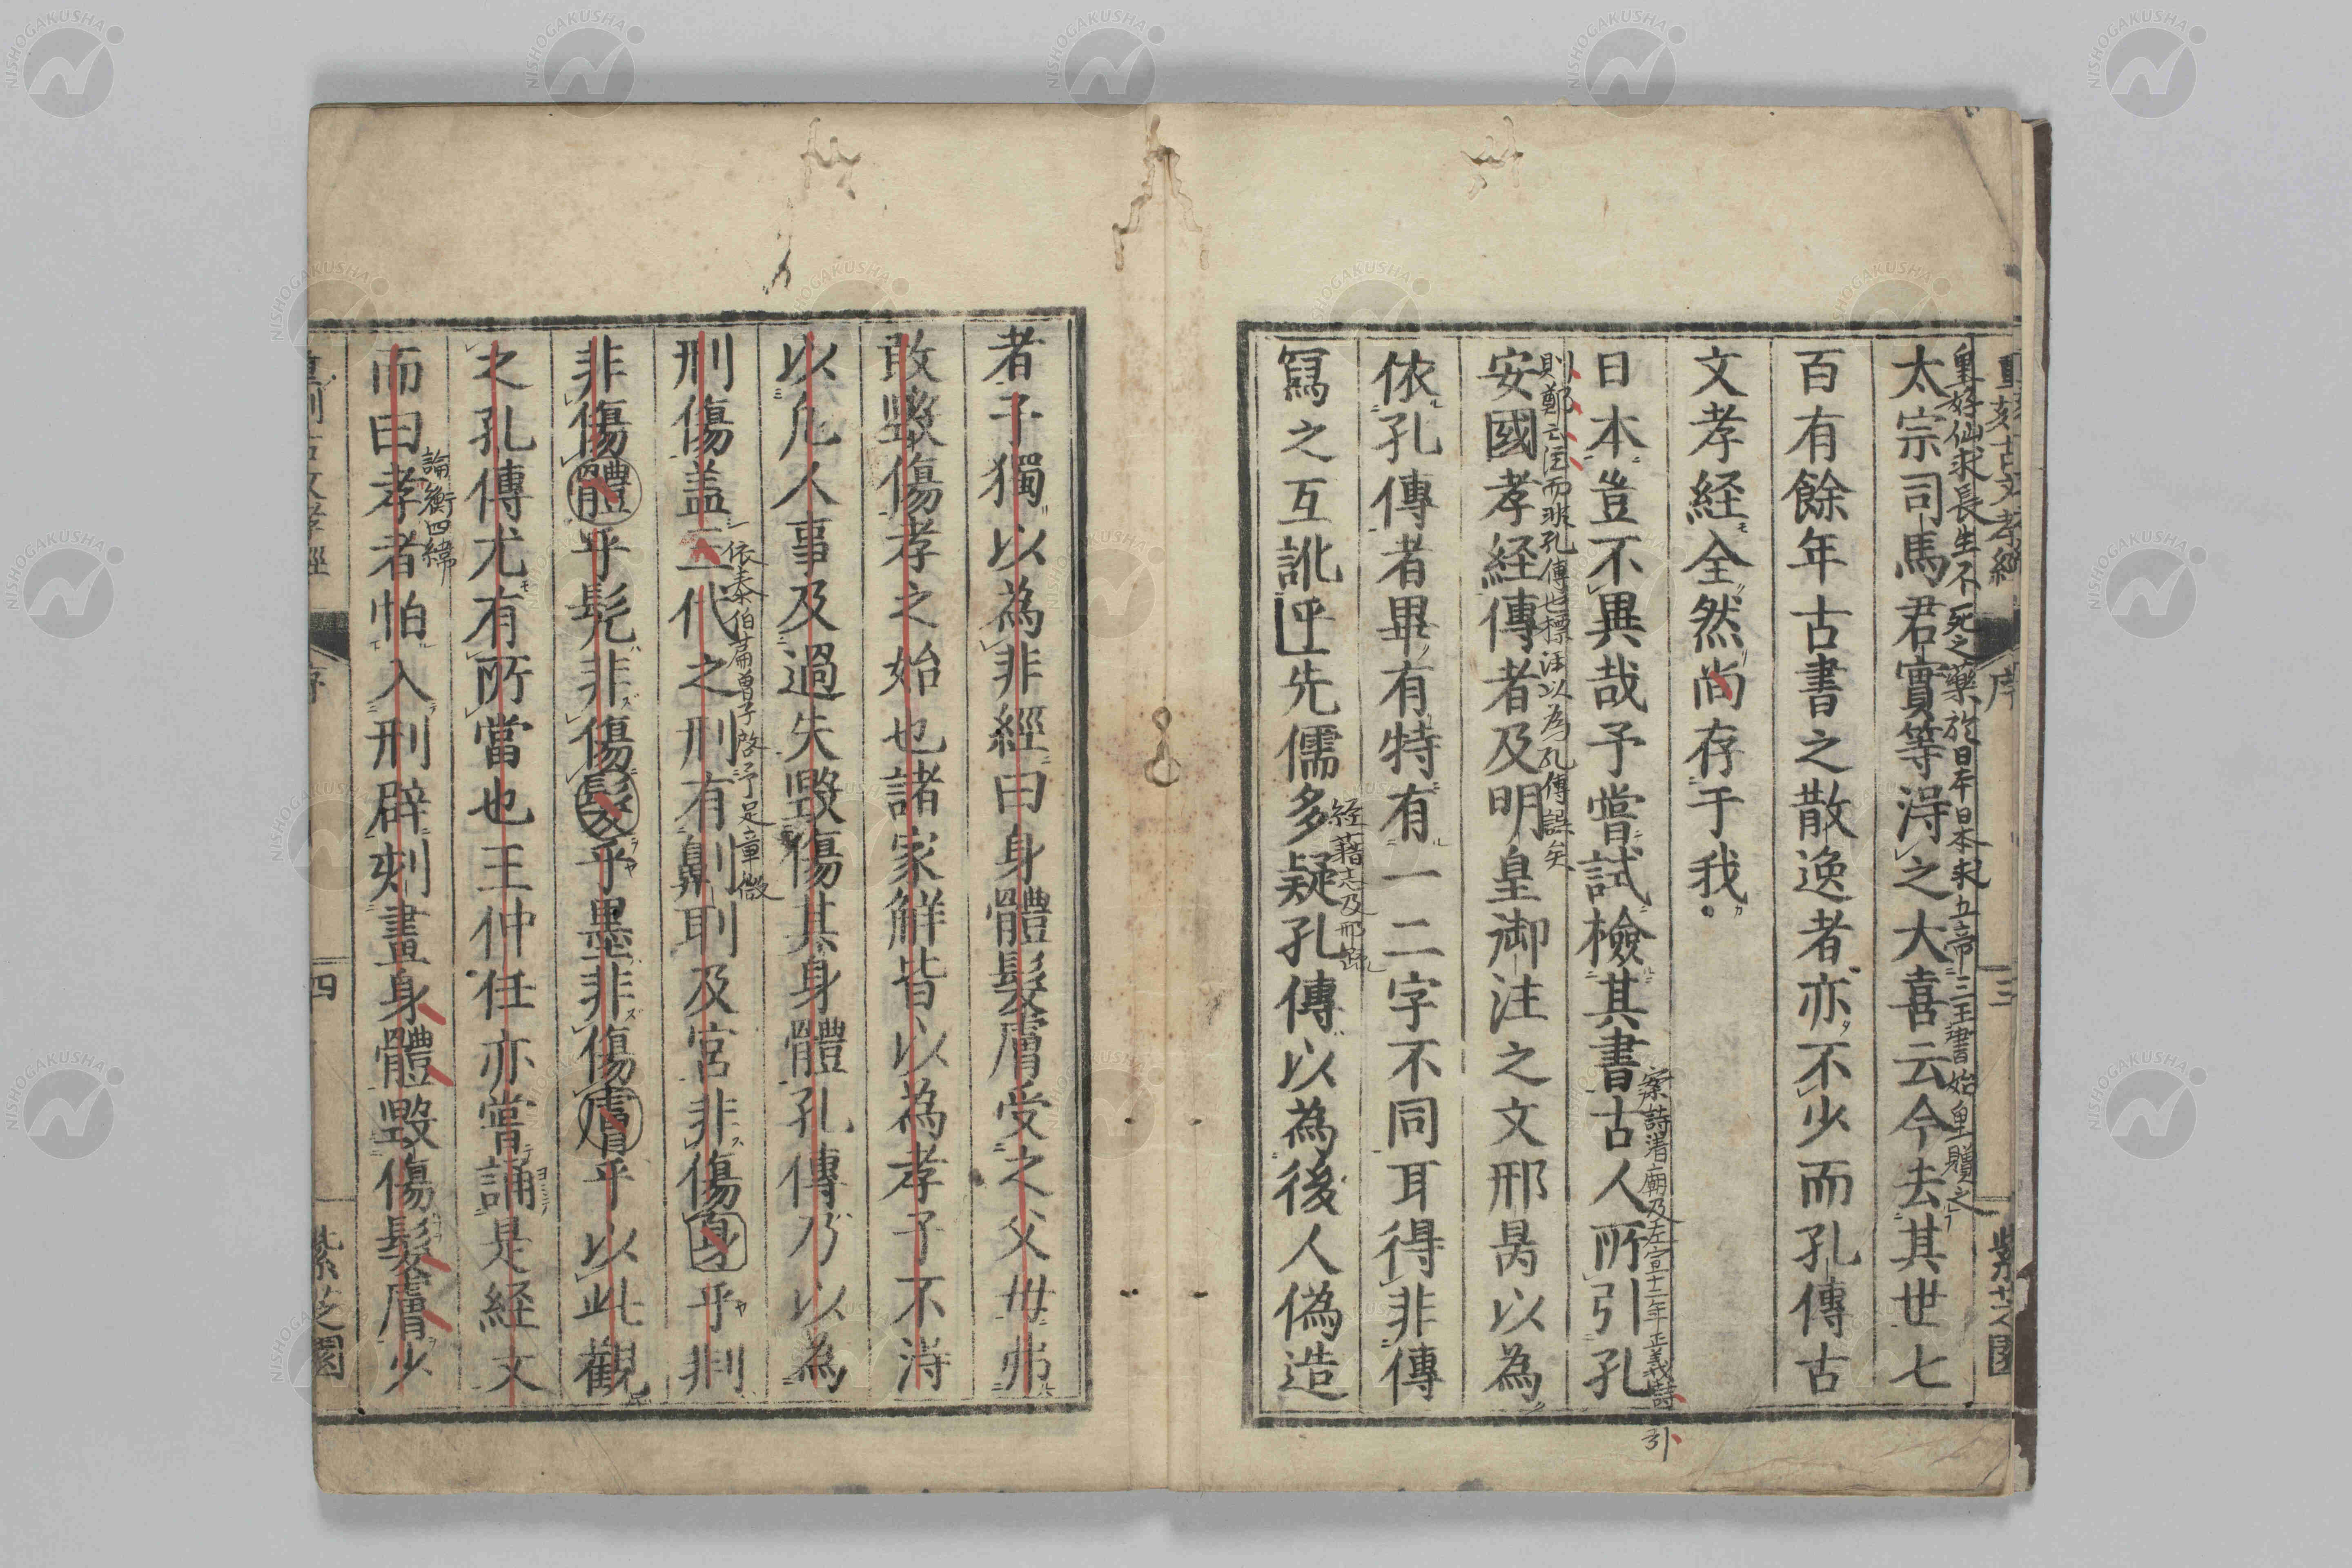 重刻古文孝經
序
三
紫芝園
皇好仙求長生不死之藥於日本日本求五帝三王書始皇贈之
太宗司馬君實等淂之大喜云今去其世七
百有餘年古書之散逸者亦不少而孔傳古
文孝経全然尚存于我
日本豈不異哉予嘗試檢其書古人所引孔
案詩清廟及左宣十二年正義
引
安國孝経傳者及明皇御注之文邢昺以為
則鄭云注而非孔傳也標注以為孔傳誤矣
依孔傳者畢有特有一二字不同耳得非傳
寫之互訛乎先儒多疑孔傳以為後人偽造
経籍志及邢疏
者予獨以為非經曰身體髮膚受之父母弗
敢毀傷孝之始也諸家解皆以為孝子不淂
以凡人事及過失毀傷其身體孔傳乃以為
刑傷盖三代之刑有劓刵及宮非傷身乎剕
依泰伯篇曽子啓予足章徴
非傷體乎髡非傷髮乎墨非傷膚乎以此觀
之孔傳尤有所當也王仲任亦嘗誦是経文
而曰孝者怕入刑辟刻畫身體毀傷髮膚少
論衡四緯
重刻古文孝經
序
四
紫芝園
NISHOGAKUSHA